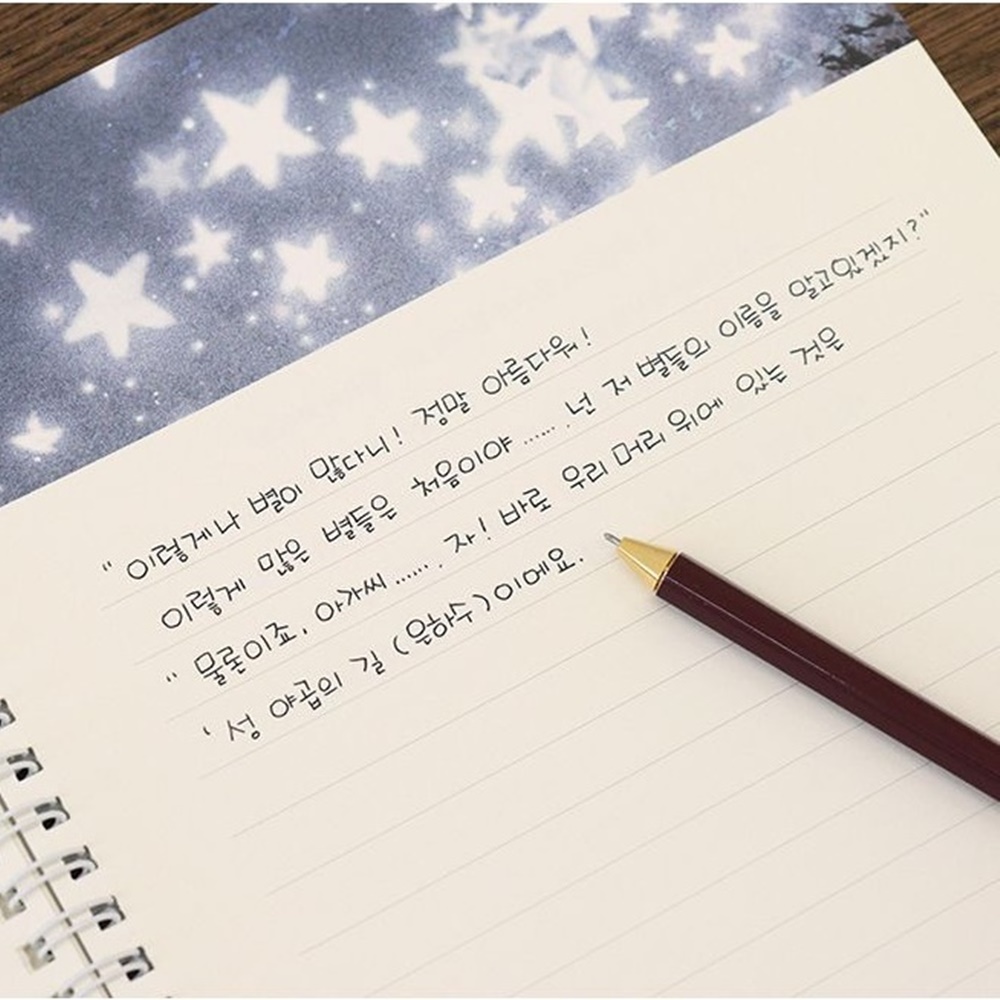 " 이렇게나 별이 많다니! 정말 아름다워!
이렇게 많은 별들은 처음이야 ...... 넌 저 별들의 이름을 알고있겠지?"
" 물론이죠, 아가씨 ....... 자! 바로 우리 머리 위에 있는 것은
' 성 야곱의 길 (은하수)이에요.